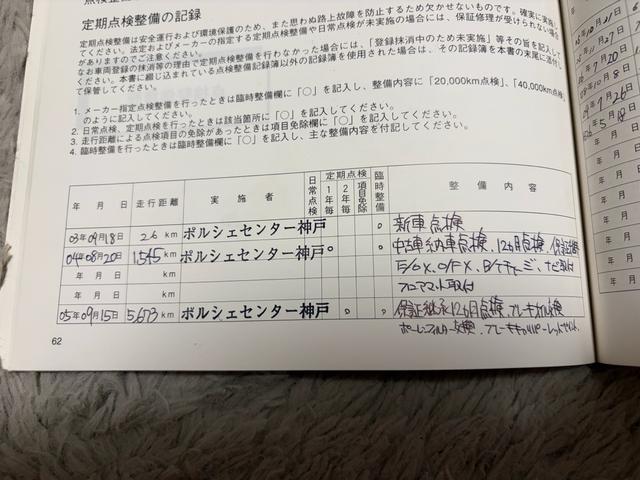 定期点検整備の記録
定期点検整備は安全運行および環境保護のため、また思わぬ路上故障を防止するため欠かせないものです。確実に実施し
てください。法定およびメーカーの指定する定期点検や日常点検が未実施の場合には、保証修理が受けられない場合
がありますのでご注意ください。
なお車両登録の抹消等の理由で定期点検整備を行わなかった場合には、「登録抹消中のため未実施」等その旨を記して
ください。本書に綴じ込まれている点検整備記録簿以外の記録簿を使用された場合は、その記録簿を本書の末尾に添付し
て保管してください。
1. メーカー指定点検整備を行ったときは臨時整備欄に「○」を記入し、整備内容に「20,000km点検」、「40,000km点検」
のように記入してください。
2. 日常点検、定期点検を行ったときは該当箇所に「○」を記入してください。
3. 走行距離による点検項目の免除があったときは項目免除欄に「○」を記入してください。
4. 臨時整備を行ったときは臨時整備欄に「○」を記入し、主な整備内容を付記してください。
年 月 日 走行距離 実施者 日常点検 定期点検 1年毎 2年毎 項目免除 臨時整備 整備内容
03年09月18日 26 km ポルシェセンター神戸 ○ 新車点検
04年08月20日 1,545 km ポルシェセンター神戸 ○ ○ 中古車納車点検、12ヵ月点検、保証継承
年 月 日 km E/OX、O/FX、
年 月 日 km フロアマット取付
05年09月15日 5,673 km ポルシェセンター神戸 ○ ○ 保証継承12ヵ月点検、ブレーキオイル交換
62